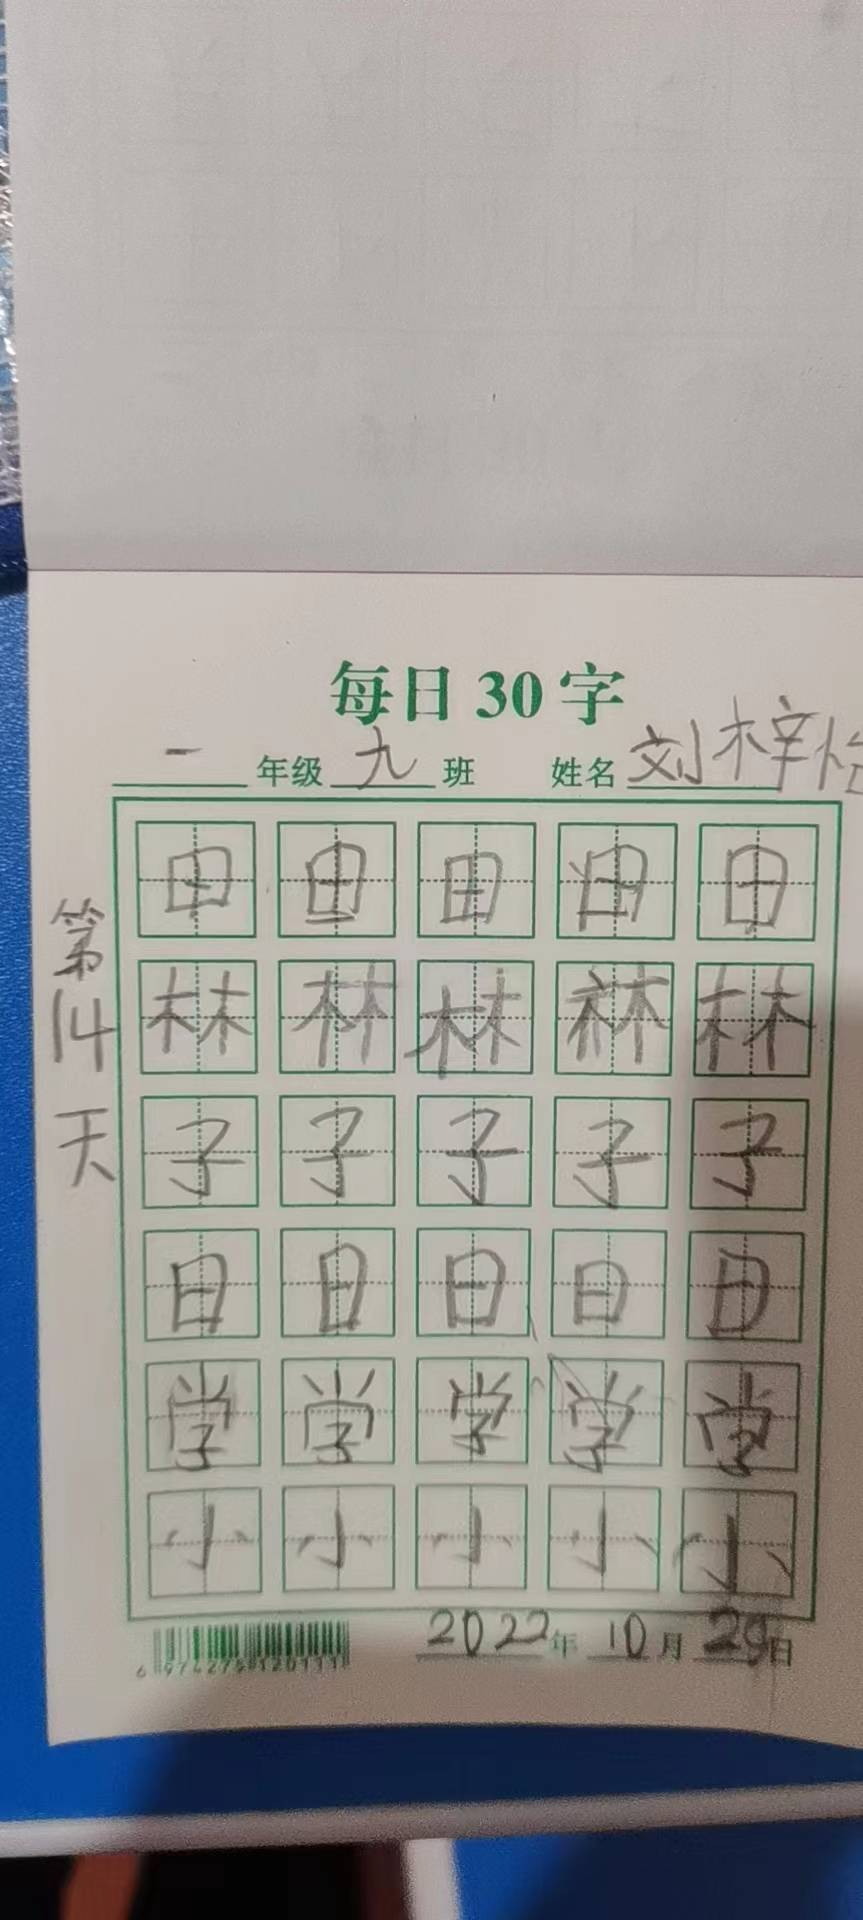 每日30字
一 年级 九 班 姓名 刘梓怡
第14天
田 田 田 田 田
林 林 林 林 林
子 子 子 子 子
日 日 日 日 日
学 学 学 学 学
小 小 小 小 小
6 974275 120111
2022年 10月 29日